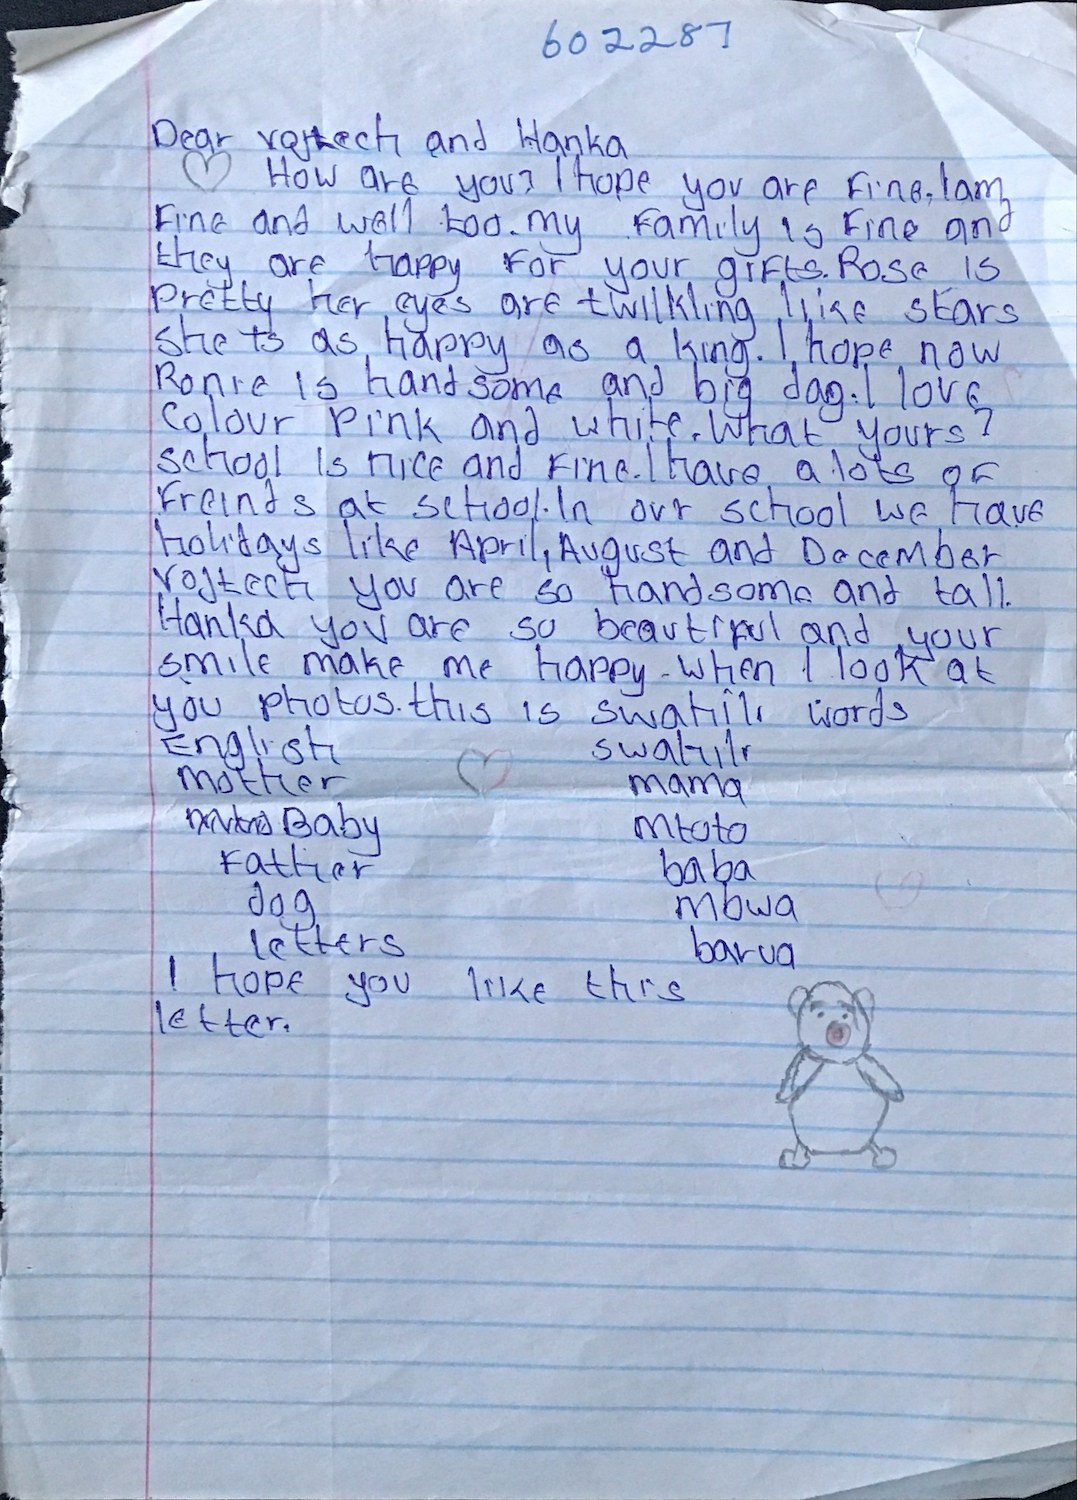 602287
Dear vojtech and Hanka
How are you? I hope you are fine. I am
fine and well too. my family is fine and
they are happy for your gifts. Rose is
pretty her eyes are twilkling like stars
she is as happy as a king. I hope now
Ronie is handsome and big dog. I love
colour pink and white. What yours?
school is nice and fine. I have a lots of
freinds at school. In our school we have
holidays like April, August and December
vojtech you are so handsome and tall.
Hanka you are so beautiful and your
smile make me happy. when I look at
you photos. this is swahili words
English swahili
mother mama
Baby mtoto
father baba
dog mbwa
letters barua
I hope you like this
letter.